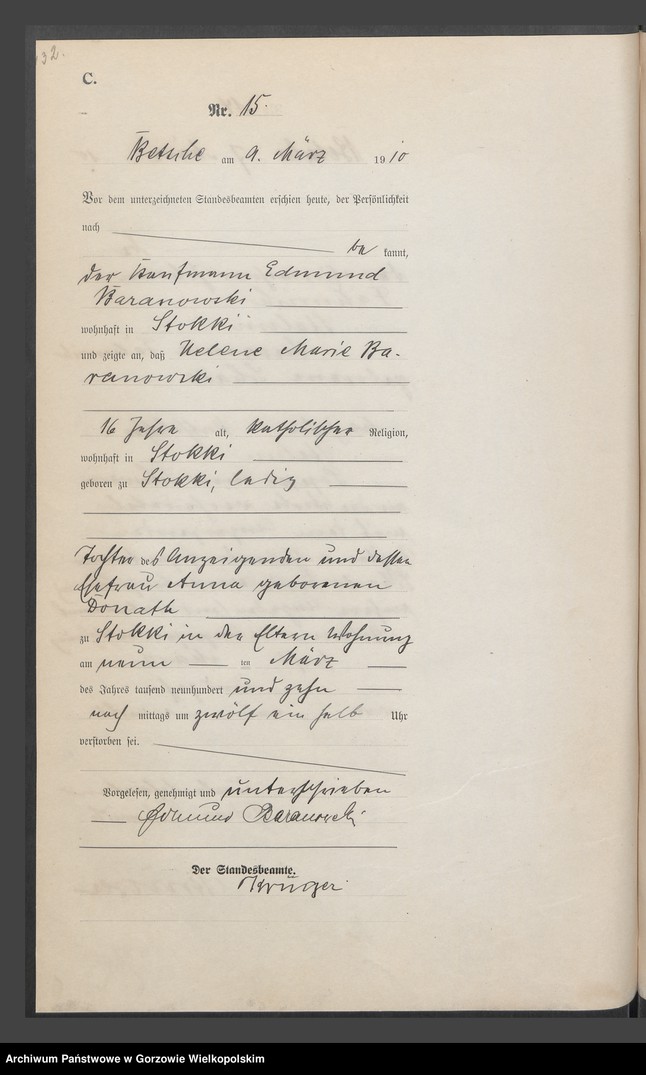 32.
C.
Nr. 15.
Betsche am 9. März 1910
Vor dem unterzeichneten Standesbeamten erschien heute, der Persönlichkeit
nach
be kannt,
der Kaufmann Edmund
Baranowski
wohnhaft in Stokki
und zeigte an, daß Helene Marie Ba-
ranowski
16 Jahre alt, katholischer Religion,
wohnhaft in Stokki
geboren zu Stokki, ledig
Tochter des Anzeigenden und dessen
Ehefrau Anna geborenen
Donath
zu Stokki in der Eltern Wohnung
am neun ten März
des Jahres tausend neunhundert und zehn
nach mittags um zwölf ein halb Uhr
verstorben sei.
Vorgelesen, genehmigt und unterschrieben
Edmund Baranowski
Der Standesbeamte.
Krüger
Archiwum Państwowe w Gorzowie Wielkopolskim